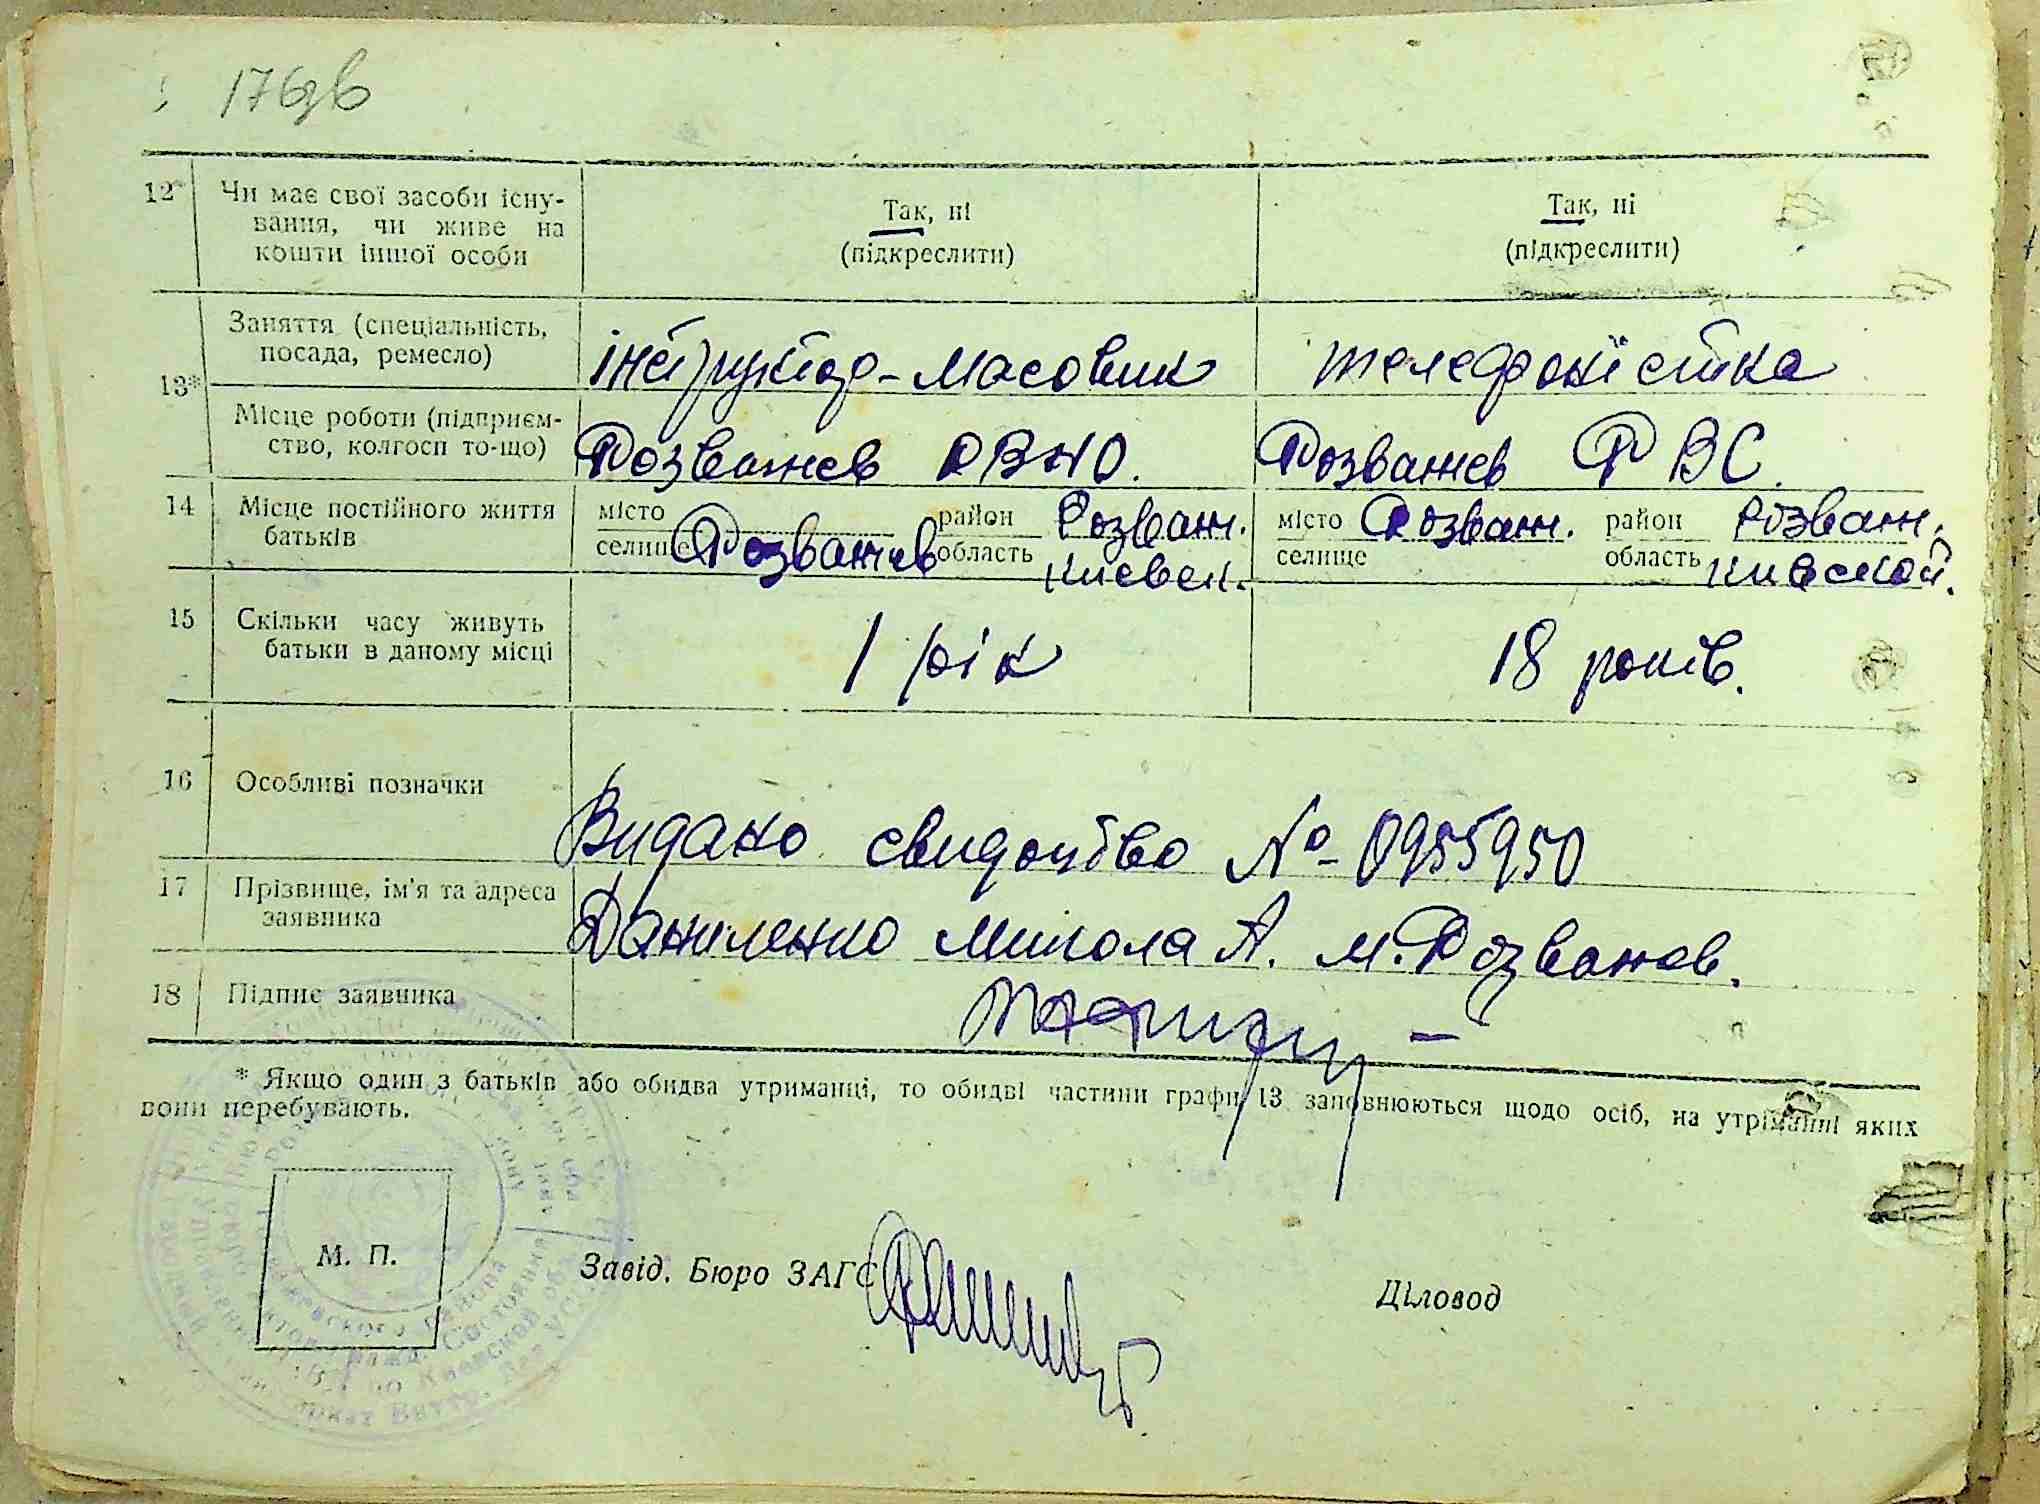 176зв
12* Чи має свої засоби існу-
вання, чи живе на
кошти іншої особи
Так, ні
(підкреслити)
Так, ні
(підкреслити)
13* Заняття (спеціальність,
посада, ремесло)
інструктор-масовик
телефоністка
Місце роботи (підприєм-
ство, колгосп то-що)
Розважев РВНО.
Розважев РВС.
14 Місце постійного життя
батьків
місто район Розваж.
селище Розважев область Киевск.
місто Розваж. район Розваж.
селище область Кивской.
15 Скільки часу живуть
батьки в даному місці
1 рік
18 років.
16 Особливі позначки
Видано свидоцтво № 0955950
17 Прізвище, ім'я та адреса
заявника
Даниленко Микола А. м. Розважев.
18 Підпис заявника
* Якщо один з батьків або обидва утриманці, то обидві частини графи 13 заповнюються щодо осіб, на утриманні яких
вони перебувають.
М. П.
Завід. Бюро ЗАГС
Діловод